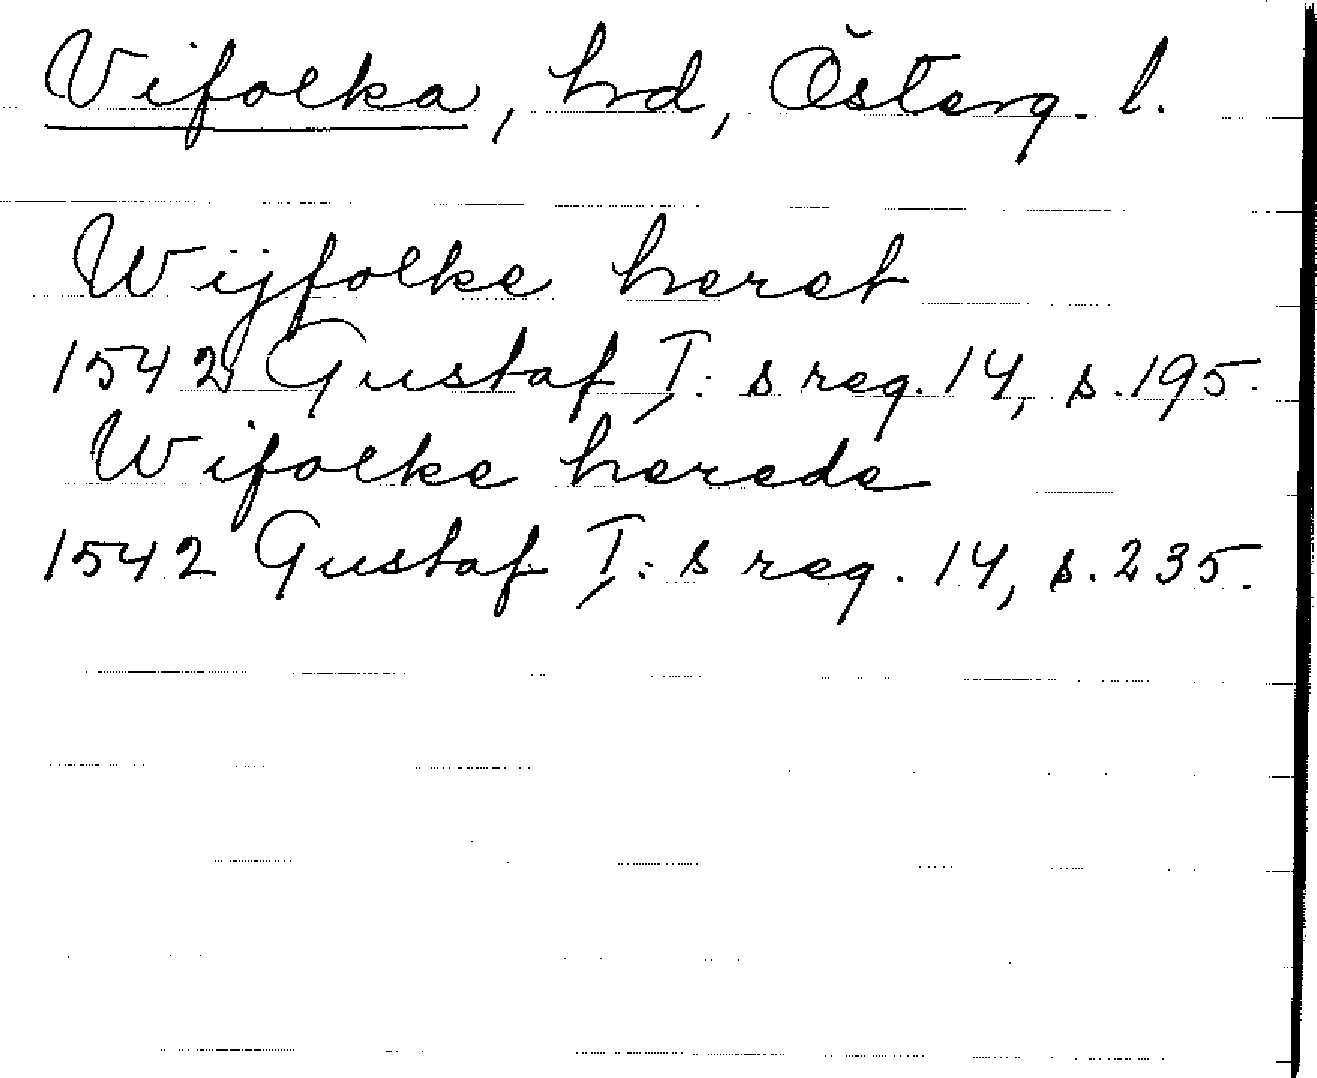 Vifolka, hrd, Österg. l.
Wijfolke heret
1542 Gustaf I:s reg. 14, s. 195.
Wifolke herede
1542 Gustaf I:s reg. 14, s. 235.